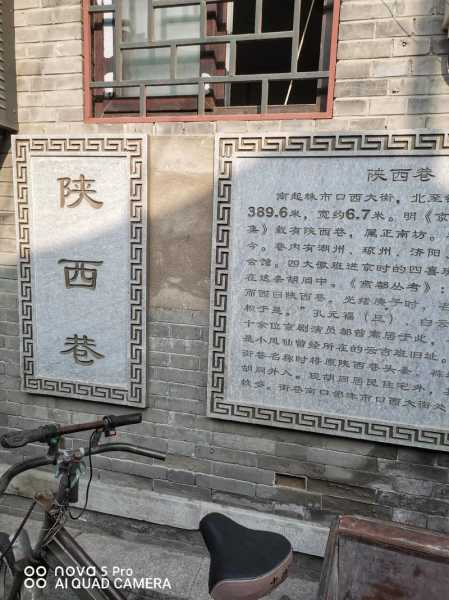 陕西巷
陕西巷
南起珠市口西大街，北至
389.6米，宽约6.7米。明《京
载有陕西巷，属正南坊。
今。巷内有潮州、琼州、济阳
会馆。四大徽班进京时的四喜
在这条胡同中。《京都丛考》：
西曰陕西巷。光绪庚子时，
于是。”孔元福（旦）、白云
十余位京剧演员都曾寓居于此。
是小凤仙曾经所在的云吉班旧址。
街巷名称时将原陕西巷头条、
胡同并入。现胡同居民住宅外，
较多。街巷南口邻珠市口西大街处
nova 5 Pro
AI QUAD CAMERA